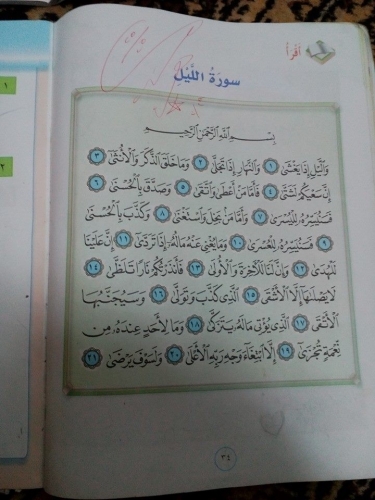 أقرأ
سورة الليل
بِسْمِ اللَّهِ الرَّحْمَنِ الرَّحِيمِ
وَاللَّيْلِ إِذَا يَغْشَى ١ وَالنَّهَارِ إِذَا تَجَلَّى ٢ وَمَا خَلَقَ الذَّكَرَ وَالْأُنْثَى ٣
إِنَّ سَعْيَكُمْ لَشَتَّى ٤ فَأَمَّا مَنْ أَعْطَى وَاتَّقَى ٥ وَصَدَّقَ بِالْحُسْنَى ٦
فَسَنُيَسِّرُهُ لِلْيُسْرَى ٧ وَأَمَّا مَنْ بَخِلَ وَاسْتَغْنَى ٨ وَكَذَّبَ بِالْحُسْنَى
٩ فَسَنُيَسِّرُهُ لِلْعُسْرَى ١٠ وَمَا يُغْنِي عَنْهُ مَالُهُ إِذَا تَرَدَّى ١١ إِنَّ عَلَيْنَا
لَلْهُدَى ١٢ وَإِنَّ لَنَا لَلْآخِرَةَ وَالْأُولَى ١٣ فَأَنْذَرْتُكُمْ نَارًا تَلَظَّى ١٤
لَا يَصْلَاهَا إِلَّا الْأَشْقَى ١٥ الَّذِي كَذَّبَ وَتَوَلَّى ١٦ وَسَيُجَنَّبُهَا
الْأَتْقَى ١٧ الَّذِي يُؤْتِي مَالَهُ يَتَزَكَّى ١٨ وَمَا لِأَحَدٍ عِنْدَهُ مِنْ
نِعْمَةٍ تُجْزَى ١٩ إِلَّا ابْتِغَاءَ وَجْهِ رَبِّهِ الْأَعْلَى ٢٠ وَلَسَوْفَ يَرْضَى ٢١
٣٤
١
٢